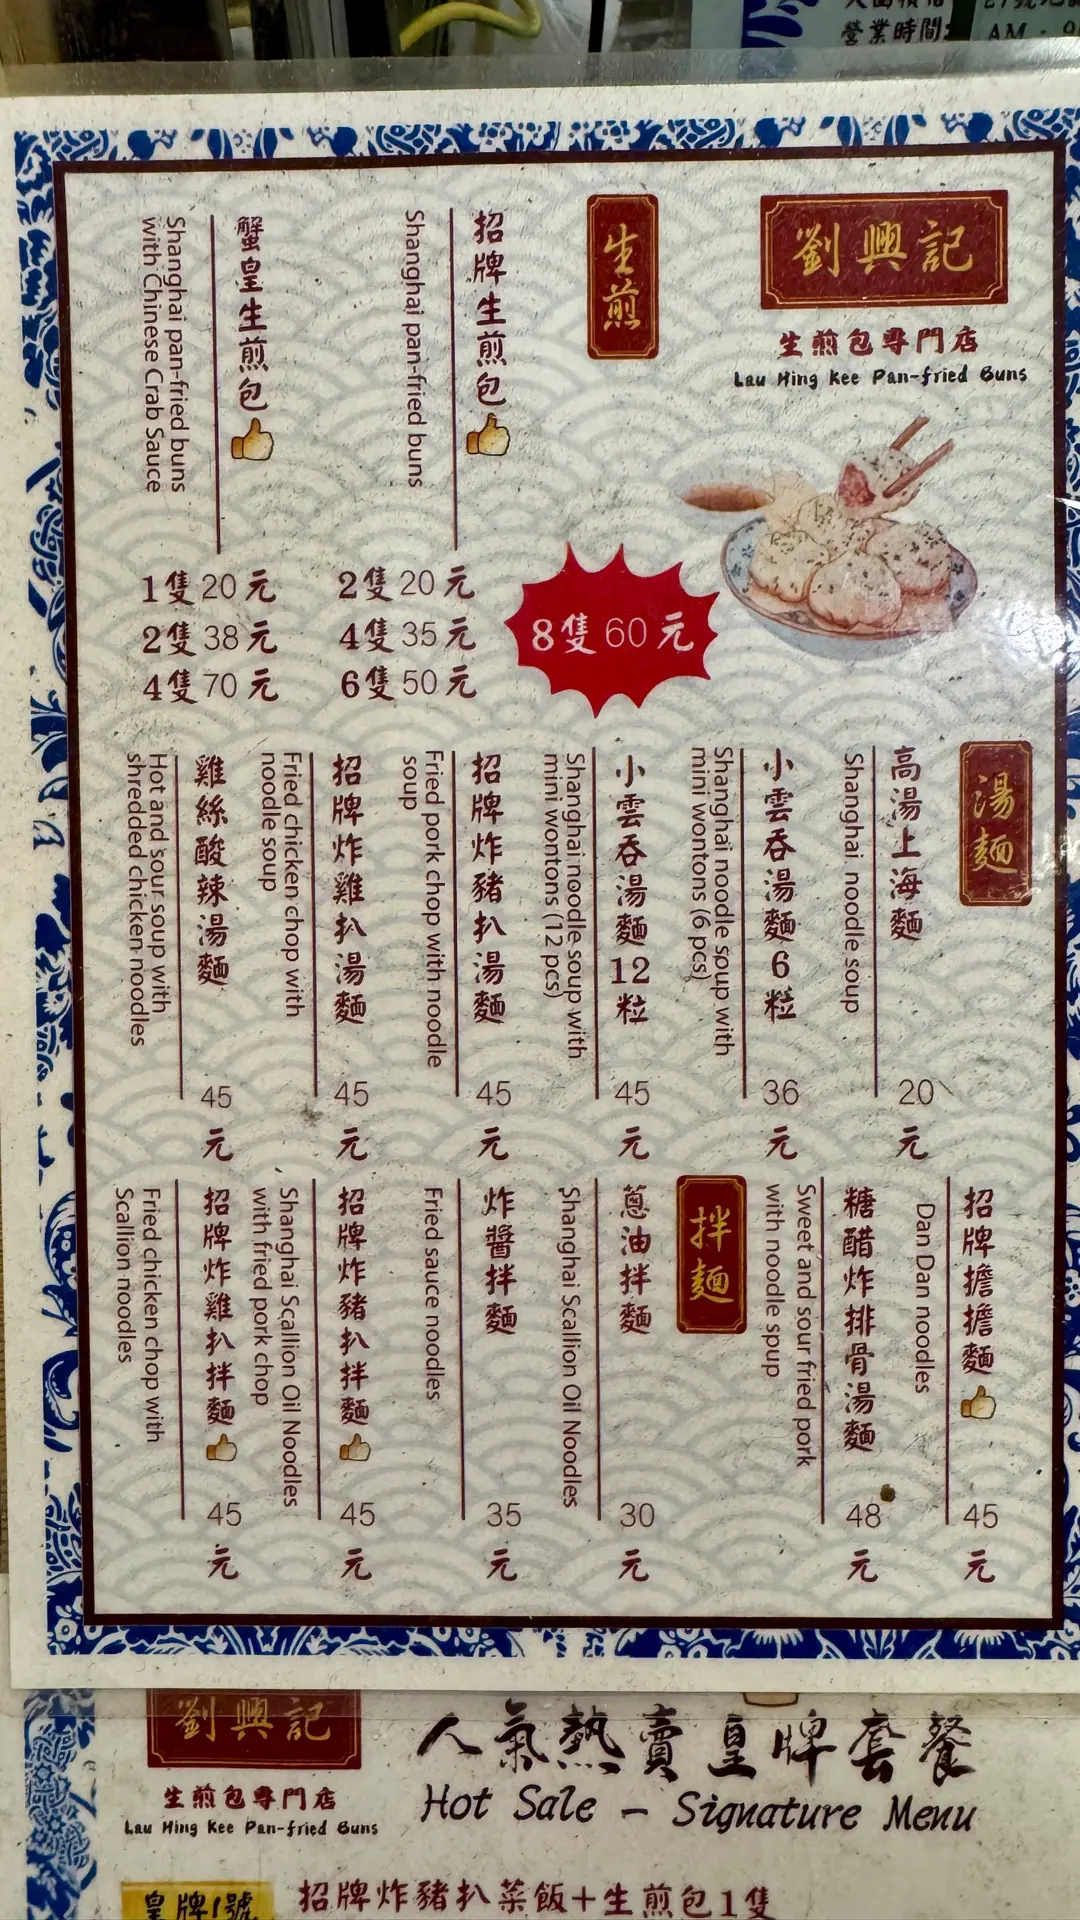 營業時間:
AM
劉興記
生煎包專門店
Lau Hing Kee Pan-fried Buns
生煎
招牌生煎包
Shanghai pan-fried buns
2隻20元
4隻35元
6隻50元
8隻60元
蟹皇生煎包
Shanghai pan-fried buns
with Chinese Crab Sauce
1隻20元
2隻38元
4隻70元
湯麵
高湯上海麵
Shanghai noodle soup
20元
小雲吞湯麵6粒
Shanghai noodle soup with
mini wontons (6 pcs)
36元
小雲吞湯麵12粒
Shanghai noodle soup with
mini wontons (12 pcs)
45元
招牌炸豬扒湯麵
Fried pork chop with noodle
soup
45元
招牌炸雞扒湯麵
Fried chicken chop with
noodle soup
45元
雞絲酸辣湯麵
Hot and sour soup with
shredded chicken noodles
45元
招牌擔擔麵
Dan Dan noodles
45元
糖醋炸排骨湯麵
Sweet and sour fried pork
with noodle spup
48元
拌麵
蔥油拌麵
Shanghai Scallion Oil Noodles
30元
炸醬拌麵
Fried sauce noodles
35元
招牌炸豬扒拌麵
Shanghai Scallion Oil Noodles
with fried pork chop
45元
招牌炸雞扒拌麵
Fried chicken chop with
Scallion noodles
45元
劉興記
生煎包專門店
Lau Hing Kee Pan-fried Buns
人氣熱賣皇牌套餐
Hot Sale - Signature Menu
皇牌1號
招牌炸豬扒菜飯+生煎包1隻